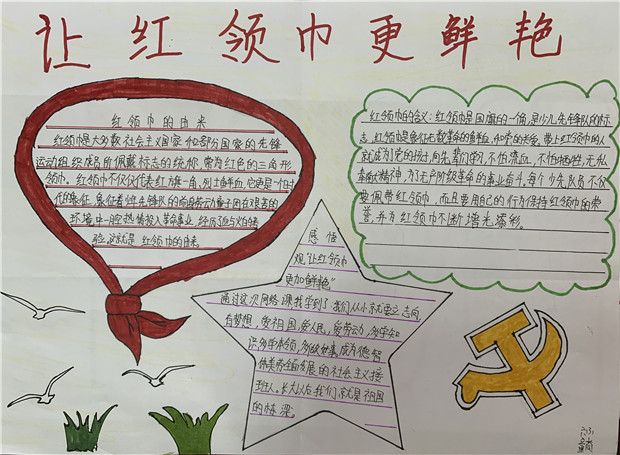 让红领巾更鲜艳
红领巾的由来
红领巾是大多数社会主义国家和部分国家的先锋
运动组织成员所佩戴标志的统称,常为红色的三角形
领巾。红领巾不仅仅代表红旗一角、烈士鲜血,它更是一个时
代的象征,象征着少年先锋队的前身劳动童子团在艰苦的
环境中一腔热情投入革命事业,经历了血与火的考
验,这就是红领巾的由来。
红领巾的含义:红领巾是国旗的一角,是少儿先锋队的标
志,红领巾是象征无数革命的鲜血,和党的关爱。带上红领巾的人
就成为了党的孩子,向先辈们学习,不怕流血,不怕牺牲,无私
奉献精神,为了无产阶级革命的事业奋斗,每个少先队员不仅
要佩带红领巾,而且要用自己的行为保持红领巾的荣
誉,并为红领巾不断增光添彩。
感悟
观“让红领巾
更加鲜艳”
通过这次网络课我学到了:我们从小就要立志向,
有梦想,爱祖国,爱人民,爱劳动,多学知
识,多学本领,多做好事,成为德智
体美劳全面发展的社会主义接
班人。长大以后我们就是祖国
的栋梁。